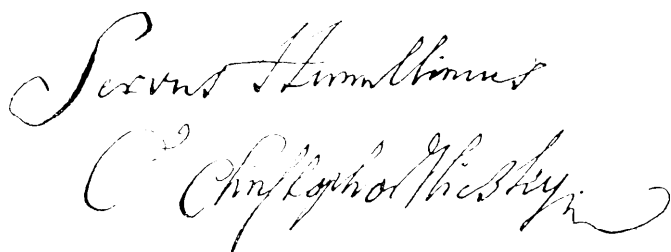 Servus Humillimus
C Christophor Thiesky